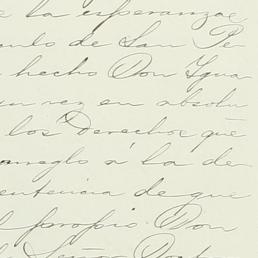 e la esperanza
anto de San Pe
hecho Don Igna
un vez en absolu
los Derechos que
arreglo á la de
entencia de que
l propio Don
Señor Doct